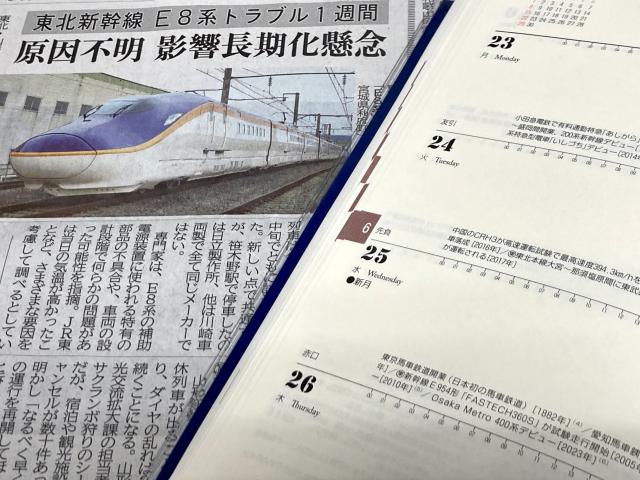 東北新幹線 E8系トラブル1週間
原因不明 影響長期化懸念
中旬でとも
た。新しい点で共
が、笹木野駅で停車したの
は日立製作所、他は川崎車
両製で全て同じメーカーで
はない。
専門家は、E8系の補助
電源装置に使われる特有の
部品の不具合や、車両の設
計段階で何らかの問題があ
った可能性を指摘。JR東
は当日の気温が高かったこ
となど、さまざまな要因を
考慮して調べるとしてい
休列車が出るこ
り、ダイヤの乱れは
続くことになる。山形
光交流拡大課の担当者
サクランボ狩りのシー
だが、宿泊や観光施設
ャンセルが数十件あっ
明かし「なるべく早く
の運行を再開してほ
23
月 Monday
小田急電鉄で有料通勤特急「あしがら
～盛岡間開業、200系新幹線デビュー
系特急型電車「いしづち」デビュー［2014
友引
24
火 Tuesday
6
先負
中国のCRH3が高速運転試験で最高速度394.3km/hを
車落成［2016年］／㊗東北本線大宮～那須塩原間に東武
が運転される［2017年］
25
水 Wednesday
●新月
赤口
東京馬車鉄道開業（日本初の馬車鉄道）［1882年］(4)／愛知馬車鉄
年］／㊗新幹線E954形「FASTECH360S」が試験走行開始［2005年
～［2010年］(5)／Osaka Metro 400系デビュー［2023年］(6)
26
木 Thursday